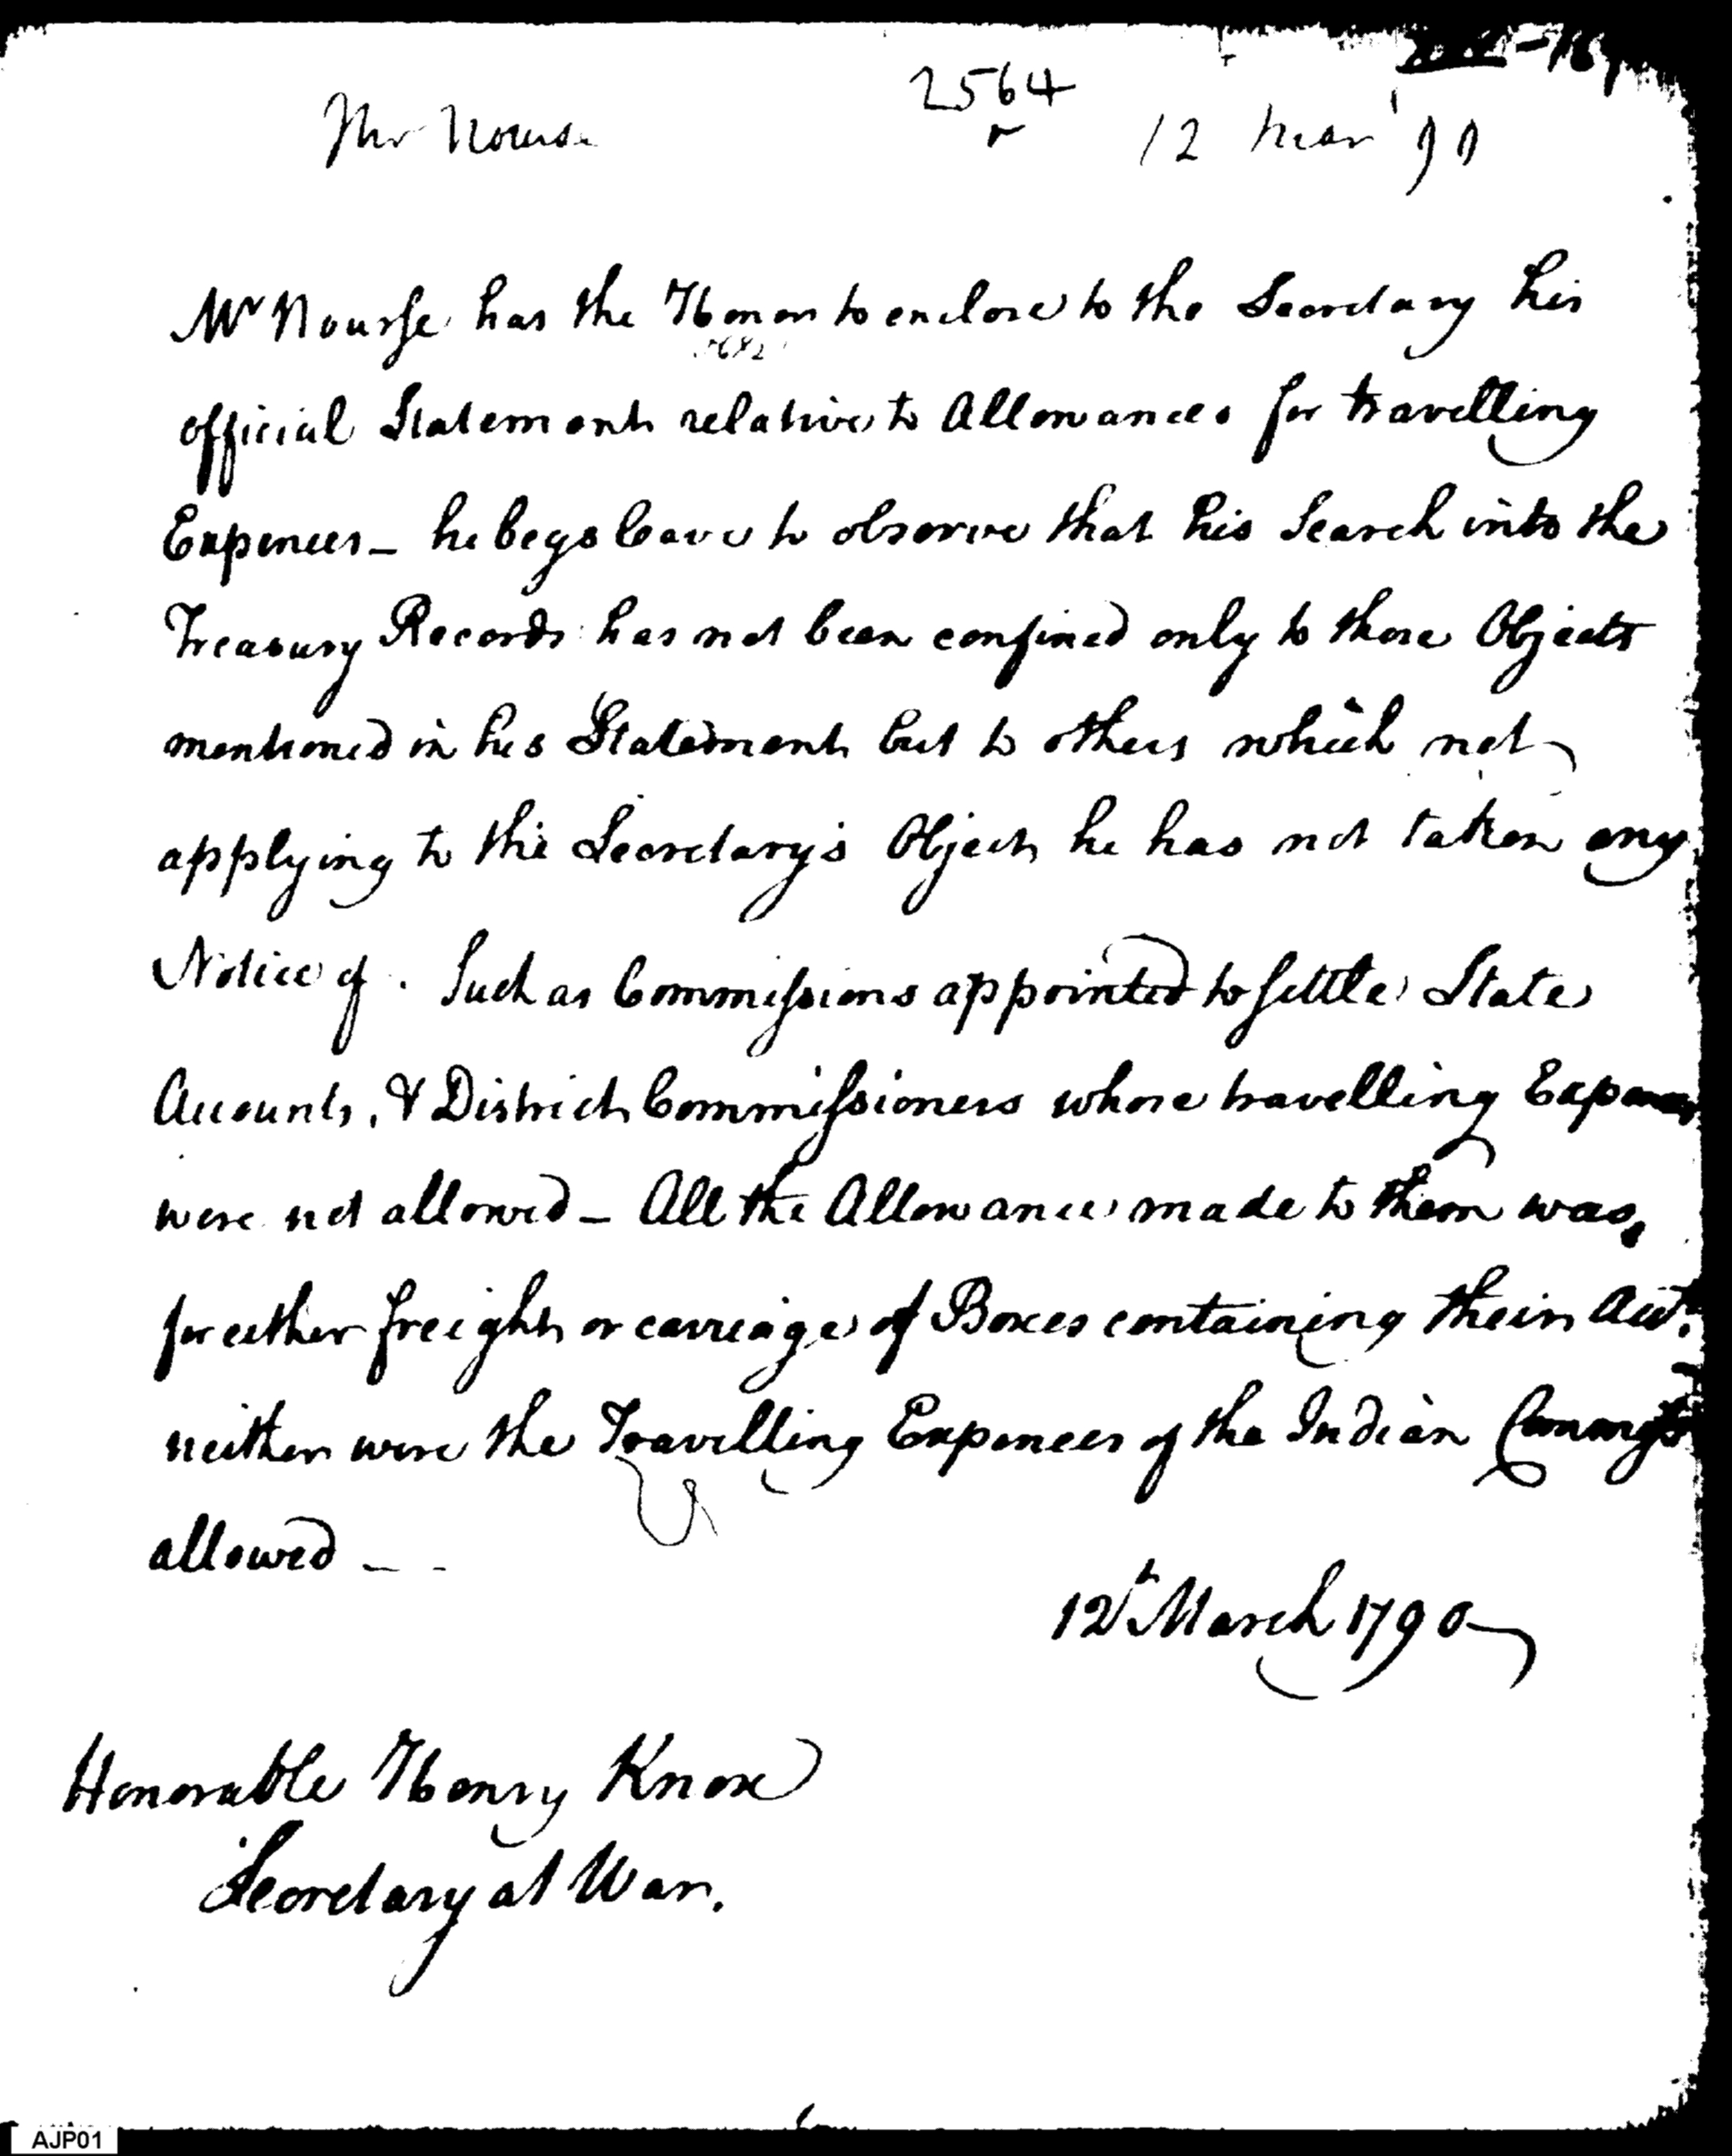 2564
Mr Nourse 12 Mar '90
Mr Nourse has the Honor to enclose to the Secretary his
official Statement relative to Allowances for travelling
Expences - he begs leave to observe that his Search into the
Treasury Records has not been confined only to those Objects
mentioned in his Statement but to others which not
applying to the Secretary's Object he has not taken any
Notice of. Such as Commissions appointed to settle State
Accounts, & District Commissioners whose travelling Expences
were not allowed - All the Allowance made to them was,
for either freight or carriage of Boxes containing their Acts.
neither were the Travelling Expences of the Indian
allowed - -
12th March 1790
Honorable Henry Knox
Secretary at War.
AJP01